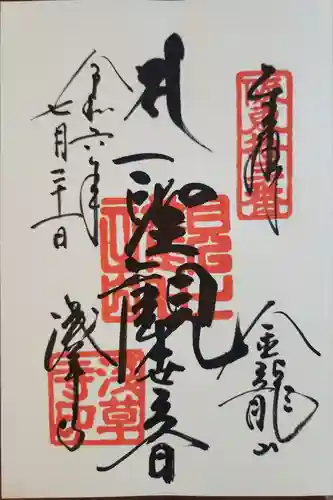 奉拝
金龍山
聖観世音
令和六年
七月二十一日
浅草寺
浅草
寺印